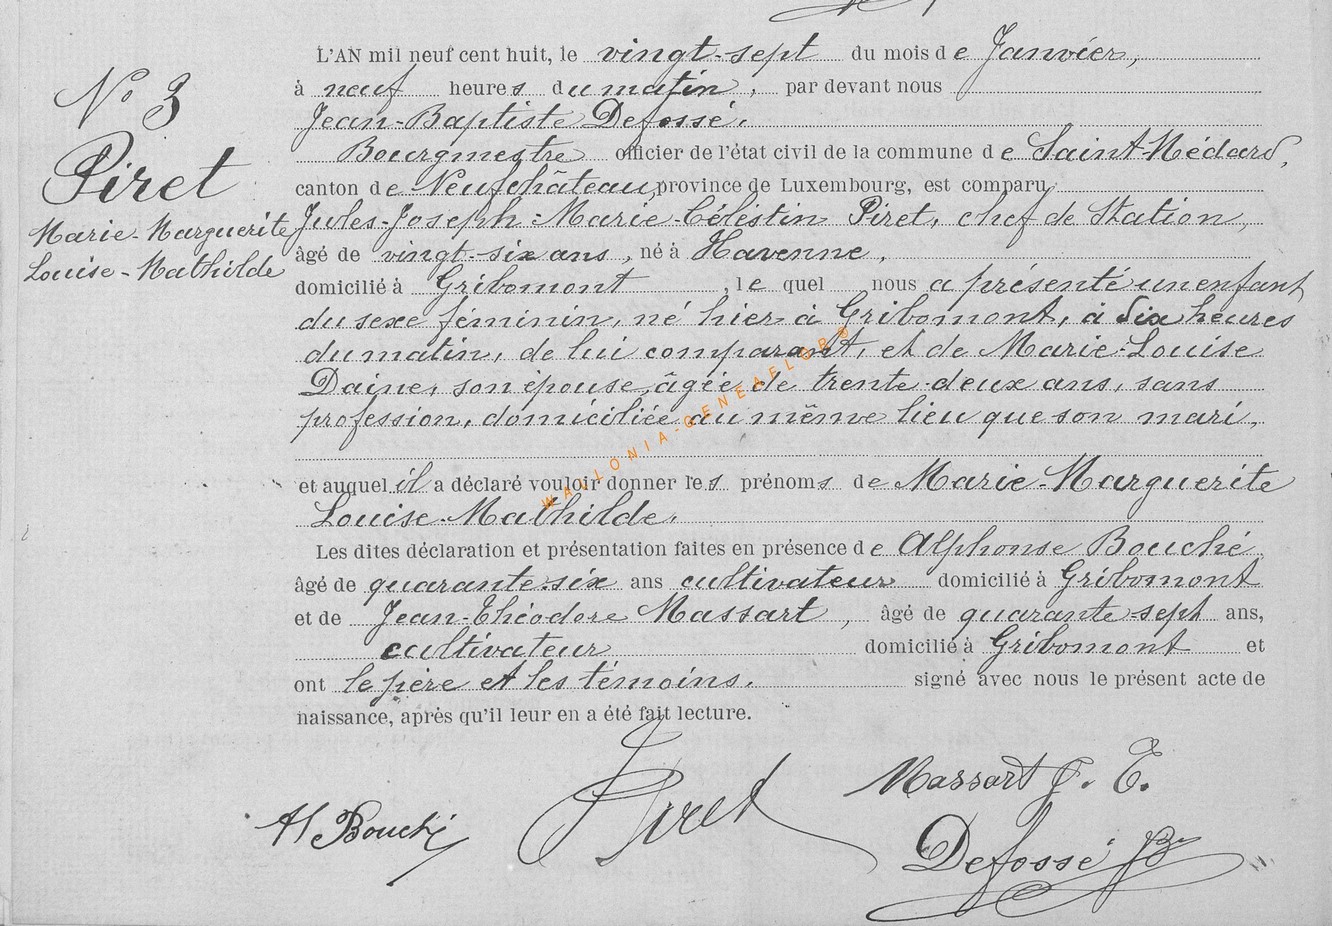 N° 3
Piret
Marie-Marguerite
Louise-Mathilde
L'AN mil neuf cent huit, le vingt-sept du mois de Janvier,
à neuf heures du matin, par devant nous
Jean-Baptiste Defossé,
Bourgmestre officier de l'état civil de la commune de Saint-Médard,
canton de Neufchâteau, province de Luxembourg, est comparu
Jules-Joseph-Marie-Céléstin Piret, chef de Station,
âgé de vingt-six ans, né à Havenne,
domicilié à Gribomont, le quel nous a présenté un enfant
du sexe féminin, né hier à Gribomont, à six heures
du matin, de lui comparant, et de Marie-Louise
Daine, son épouse, âgée de trente-deux ans, sans
profession, domiciliée au même lieu que son mari,
et auquel il a déclaré vouloir donner les prénoms de Marie-Marguerite
Louise-Mathilde.
Les dites déclaration et présentation faites en présence de Alphonse Bouché
âgé de quarante-six ans cultivateur domicilié à Gribomont
et de Jean-Théodore Massart, âgé de quarante-sept ans,
cultivateur domicilié à Gribomont et
ont le père et les témoins. signé avec nous le présent acte de
naissance, après qu'il leur en a été fait lecture.
Massart J. T.
Al Bouché
J Piret
Defossé JB
WALLONIA-GENEAFLOR®